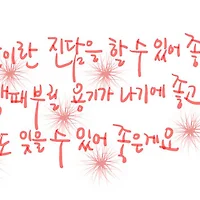 이란 진담을 할 수 있어 좋
깽패부릴 용기가 나기에 좋고
도 잊을 수 있어 좋은게요